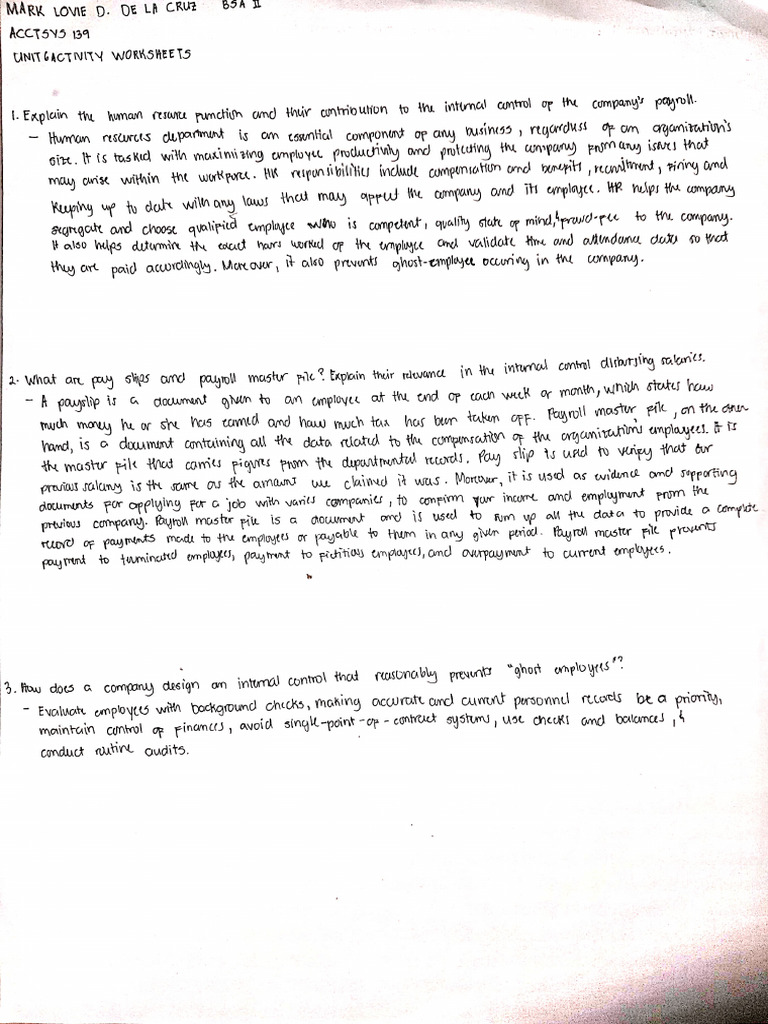 MARK LOVIE D. DE LA CRUZ BSA II
ACCTSYS 139
UNIT 6 ACTIVITY WORKSHEETS
1. Explain the human resource function and their contribution to the internal control of the company's payroll.
- Human resources department is an essential component of any business, regardless of an organization's
size. It is tasked with maximizing employee productivity and protecting the company from any issues that
may arise within the workforce. HR responsibilities include compensation and benefits, recruitment, firing and
keeping up to date with any laws that may affect the company and its employee. HR helps the company
segregate and choose qualified employee who is competent, quality state of mind, & fraud-free to the company.
It also helps determine the exact hours worked of the employee and validate time and attendance data so that
they are paid accordingly. Moreover, it also prevents ghost-employee occuring in the company.
2. What are pay slips and payroll master file? Explain their relevance in the internal control disbursing salaries.
- A payslip is a document given to an employee at the end of each week or month, which states how
much money he or she has earned and how much tax has been taken off. Payroll master file, on the other
hand, is a document containing all the data related to the compensation of the organization's employees. It is
the master file that carries figures from the departmental records. Pay slip is used to verify that our
previous salary is the same as the amount we claimed it was. Moreover, it is used as evidence and supporting
documents for applying for a job with varies companies, to confirm your income and employment from the
previous company. Payroll master file is a document and is used to sum up all the data to provide a complete
record of payments made to the employees or payable to them in any given period. Payroll master file prevents
payment to terminated employees, payment to fictitious employees, and overpayment to current employees.
3. How does a company design an internal control that reasonably prevents "ghost employees"?
- Evaluate employees with background checks, making accurate and current personnel records be a priority,
maintain control of finances, avoid single-point-of-contract systems, use checks and balances, &
conduct routine audits.